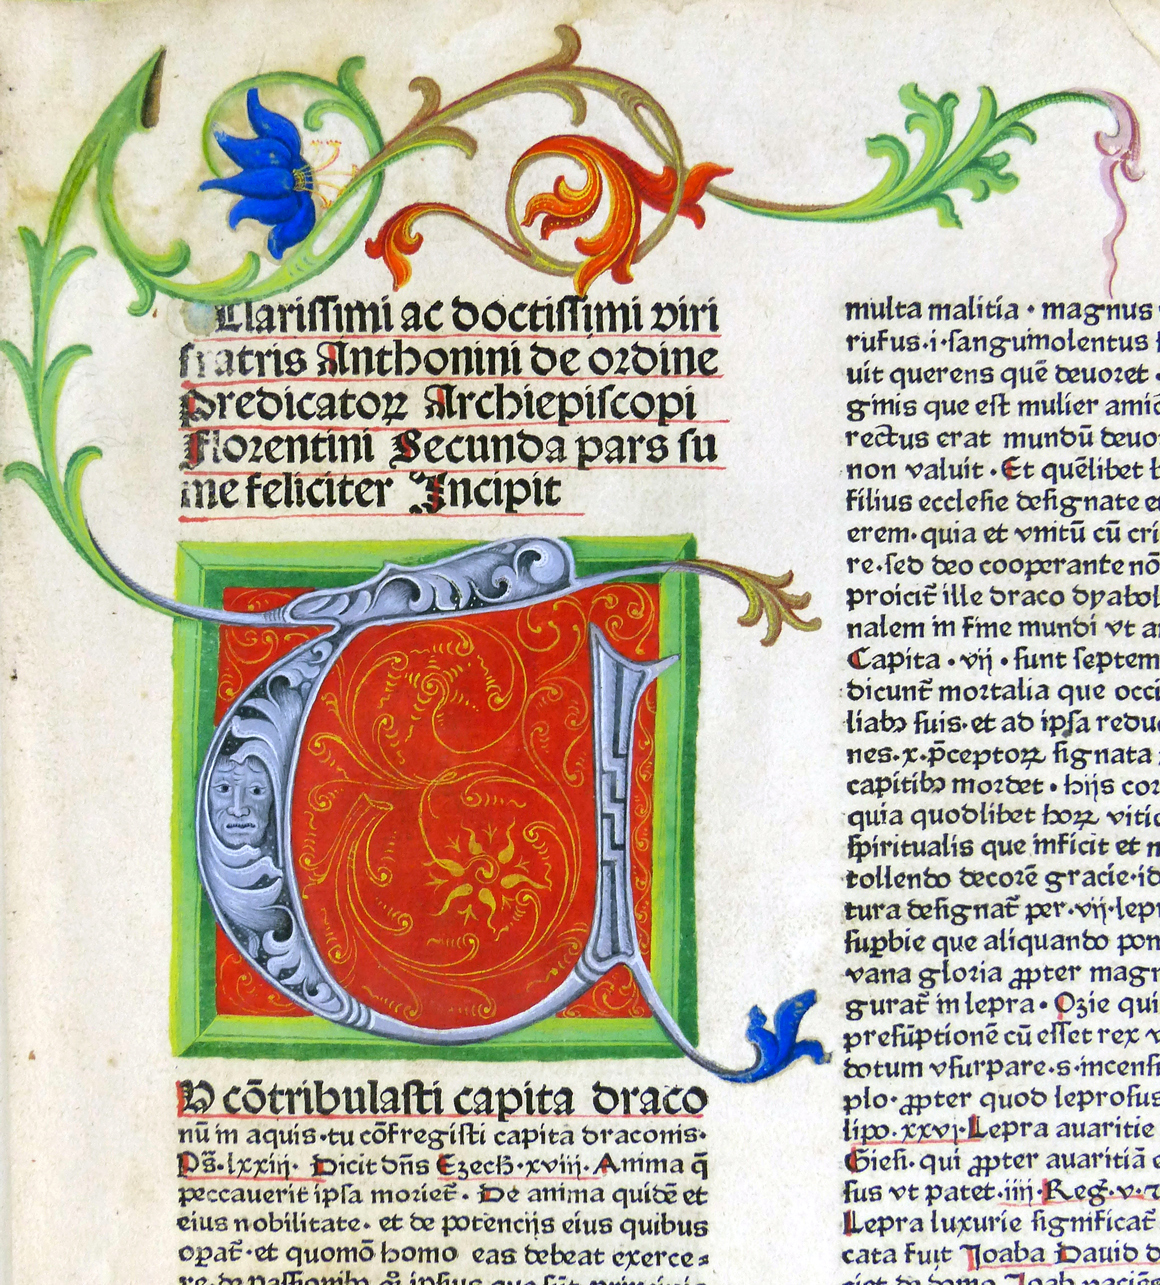 Clarissimi ac doctissimi viri
fratris Anthonini de ordine
predicatoꝝ Archiepiscopi
Florentini Secunda pars su
me feliciter Incipit
T
V cōtribulasti capita draco
nū in aquis·tu cōfregisti capita draconis·
Ps̄·lxxiij· Dicit dn̄s Ezech·xviij·Anima q̄
peccauerit ipsa moriet̄· De anima quidē et
eius nobilitate· et de potencijs eius quibus
opat̄·et quomō homo eas debeat exerce⸗
multa malitia·magnus
rufus·i·sanguinolentus
uit querens quē deuoret·
ginis que est mulier amic
rectus erat mundū deuo
non valuit·Et quēlibet
filius ecclesie designate e
erem·quia et vnitū cū cri
re·sed deo cooperante nō
proicit̄ ille draco dyabol
nalem in fine mundi vt a
Capita·vij·sunt septem
dicunt̄ mortalia que occi
liabꝰ suis·et ad ipsa redu
nes·x·p̄ceptoꝝ signata
capitibꝫ mordet·hijs cor
quia quodlibet hoꝝ vitio
spiritualis que inficit et
tollendo decorē gracie·id
tura designat̄ per·vij·lep
supbie que aliquando pon
vana gloria ꝓpter mag
gurat̄ in lepra·Ozie qui
presūptionē cū esset rex
dotum vsurpare·s·incens
plo·ꝓpter quod leprosus
lipo·xxvj·Lepra auaritie
Giesi·qui ꝓpter auaritiā
sus vt patet·iiij·Reḡ·v·
Lepra luxurie significat̄
cata fuit Joaba Dauid